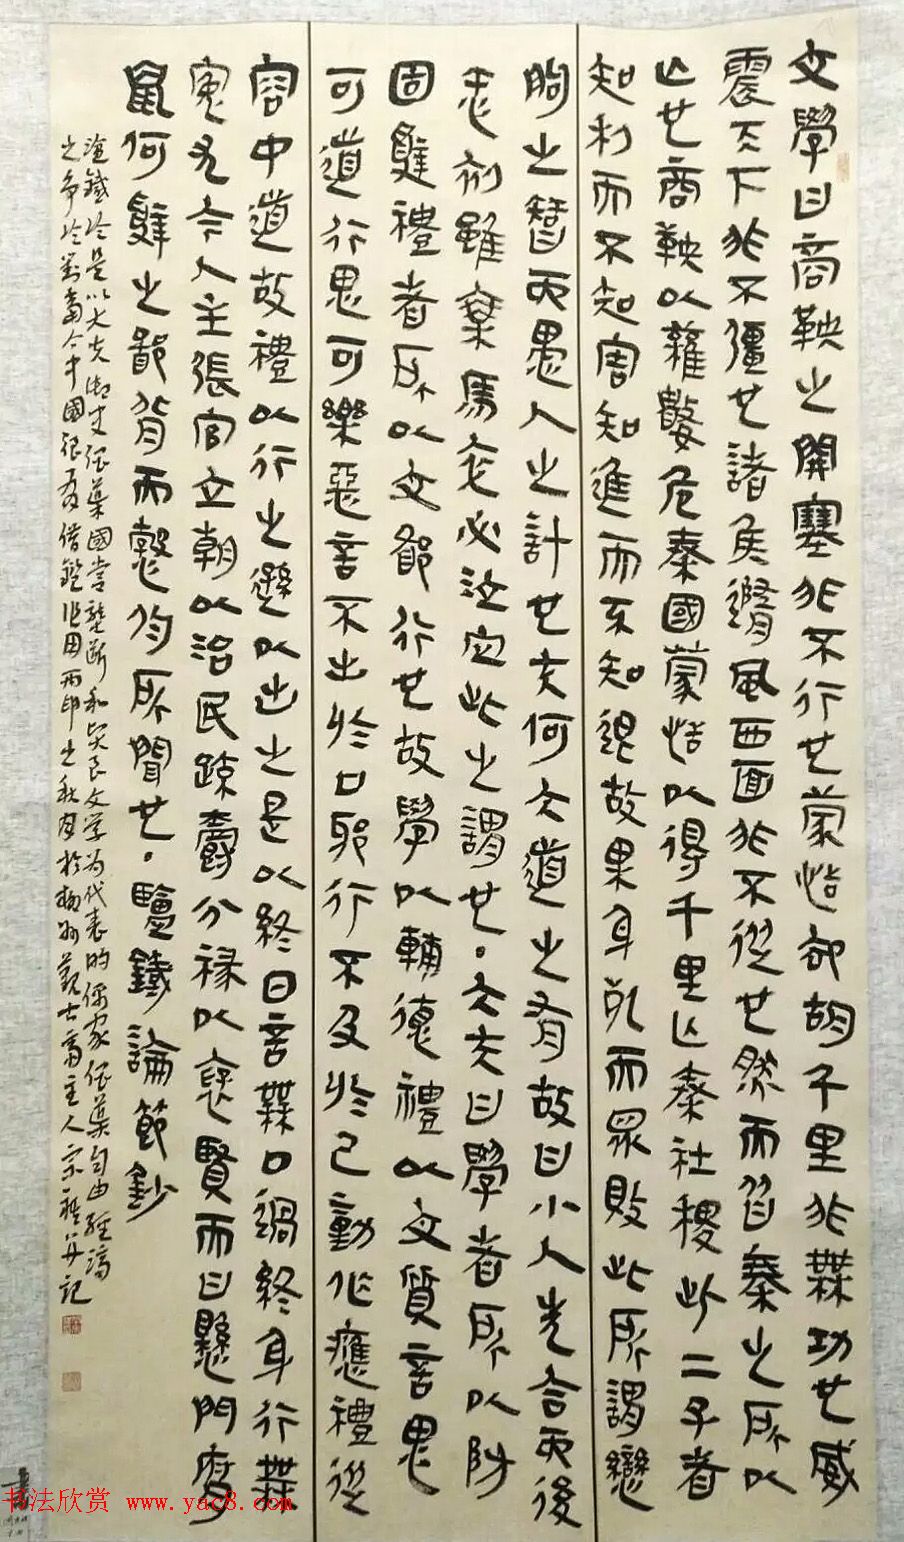 文學曰商鞅之開塞非不行也蒙恬卻胡千里非無功也威
震天下非不彊也諸侯隨風西面非不從也然而皆秦之所以
亡也商鞅以權數危秦國蒙恬以得千里亡秦社稷此二子者
知利而不知害知進而不知退故果身死而眾敗此所謂戀
朐之智而愚人之計也夫何大道之有故曰小人先合而後
忤初雖乘馬卒必泣血此之謂也大夫曰學者所以防
固辭禮者所以文鄙行也故學以輔德禮以文質言思
可道行思可樂惡言不出於口邪行不及於己動作應禮從
容中道故禮以行之遜以出之是以終日言無口過終身行無
冤尤今人主張官立朝以治民疏爵分祿以褒賢而曰懸門腐
鼠何辭之鄙背而懸於所聞也 鹽鐵論節鈔
鹽鐵論是以大夫御史
國營壟斷和賢良文學為代表的儒家
自由經濟
之爭
對當今中國很有借鑒作用
主人宗
并記
书法欣赏 www.yac8.com